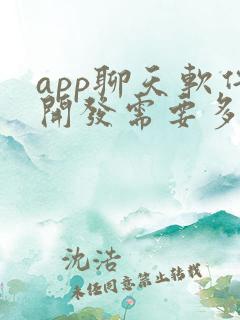 app聊天軟件
開發需要多
沈浩
未经同意禁止转载